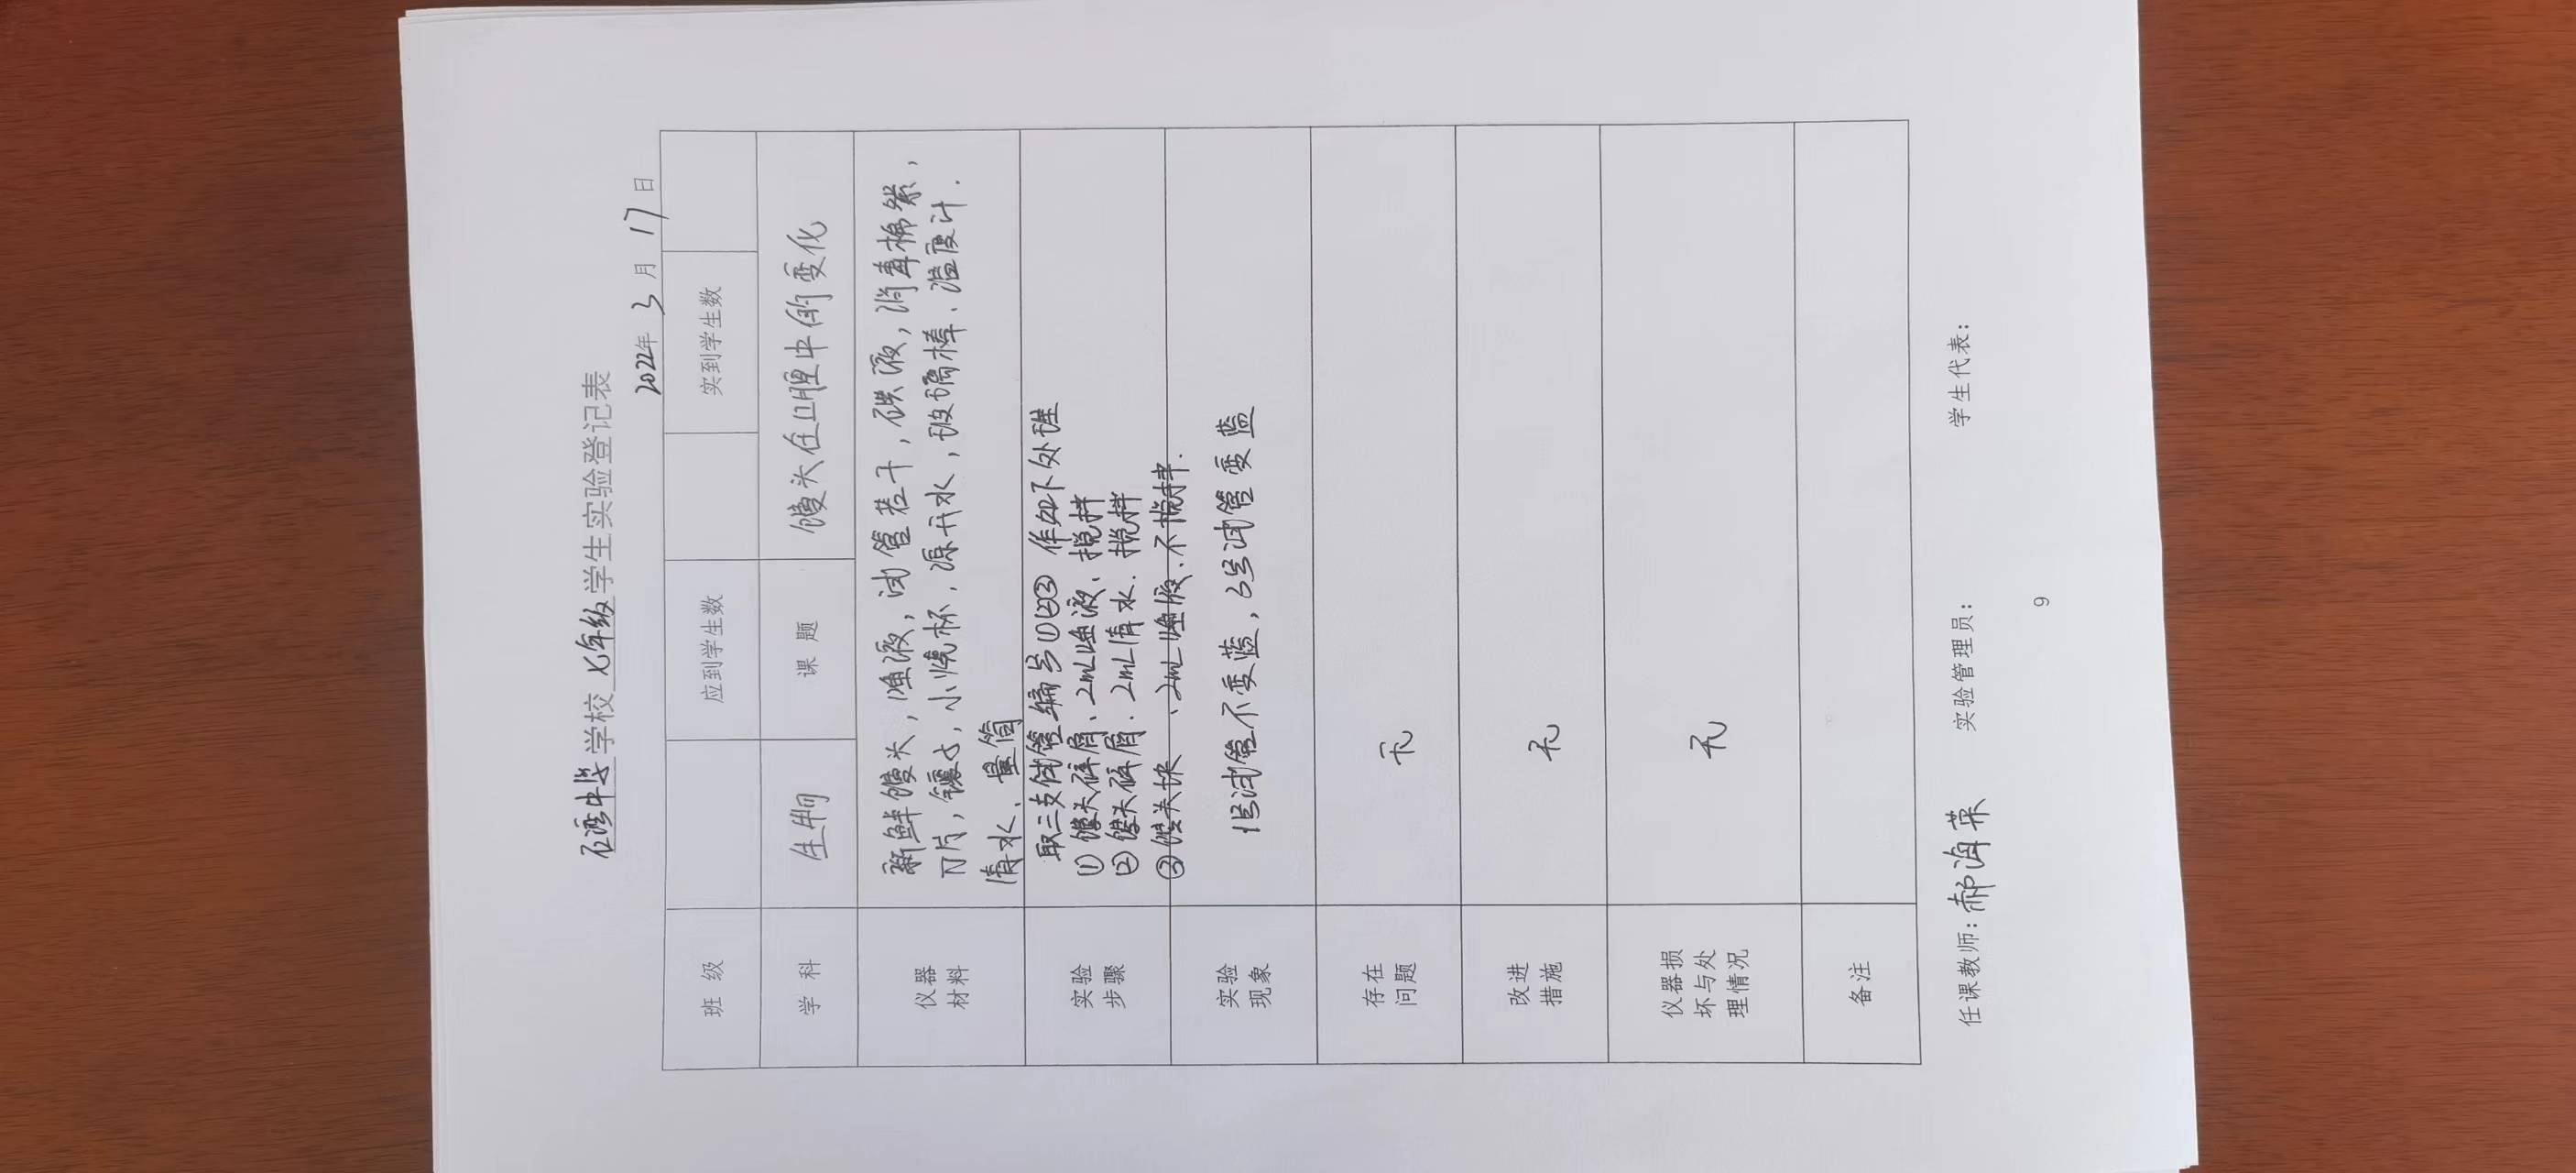 石湾中学学校七年级学生实验登记表
2022年 3 月 17 日
班 级 应到学生数 实到学生数
学 科 生物 课 题 馒头在口腔中的变化
仪器
材料
新鲜馒头，唾液，试管若干，碘液，消毒棉絮，
刀片，镊子，小烧杯，凉开水，玻璃棒、温度计.
清水、量筒
实验
步骤
取三支试管编号①②③ 作如下处理
① 馒头碎屑、2mL唾液、搅拌
② 馒头碎屑、2mL清水、搅拌
③ 馒头块、2mL唾液、不搅拌.
实验
现象
1号试管不变蓝，2.3号试管变蓝
存在
问题
无
改进
措施
无
仪器损
坏与处
理情况
无
备注
任课教师：郝海荣 实验管理员： 学生代表：
9